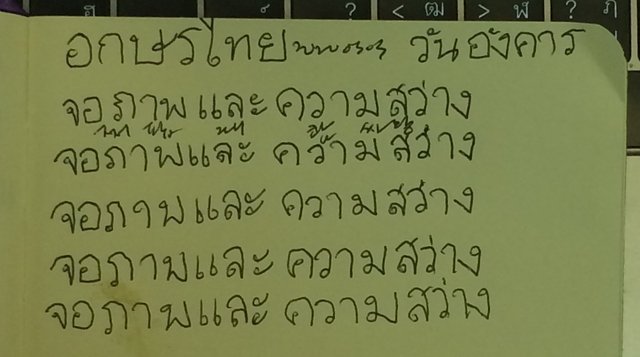 ฮ ์ ? < ฒ > ฬ ? ฦ
อกษรไทย วันอังคาร
จอภาพและความสว่าง
จอภาพและ ความสว่าง
จอภาพและ ความสว่าง
จอภาพและ ความสว่าง
จอภาพและ ความสว่าง